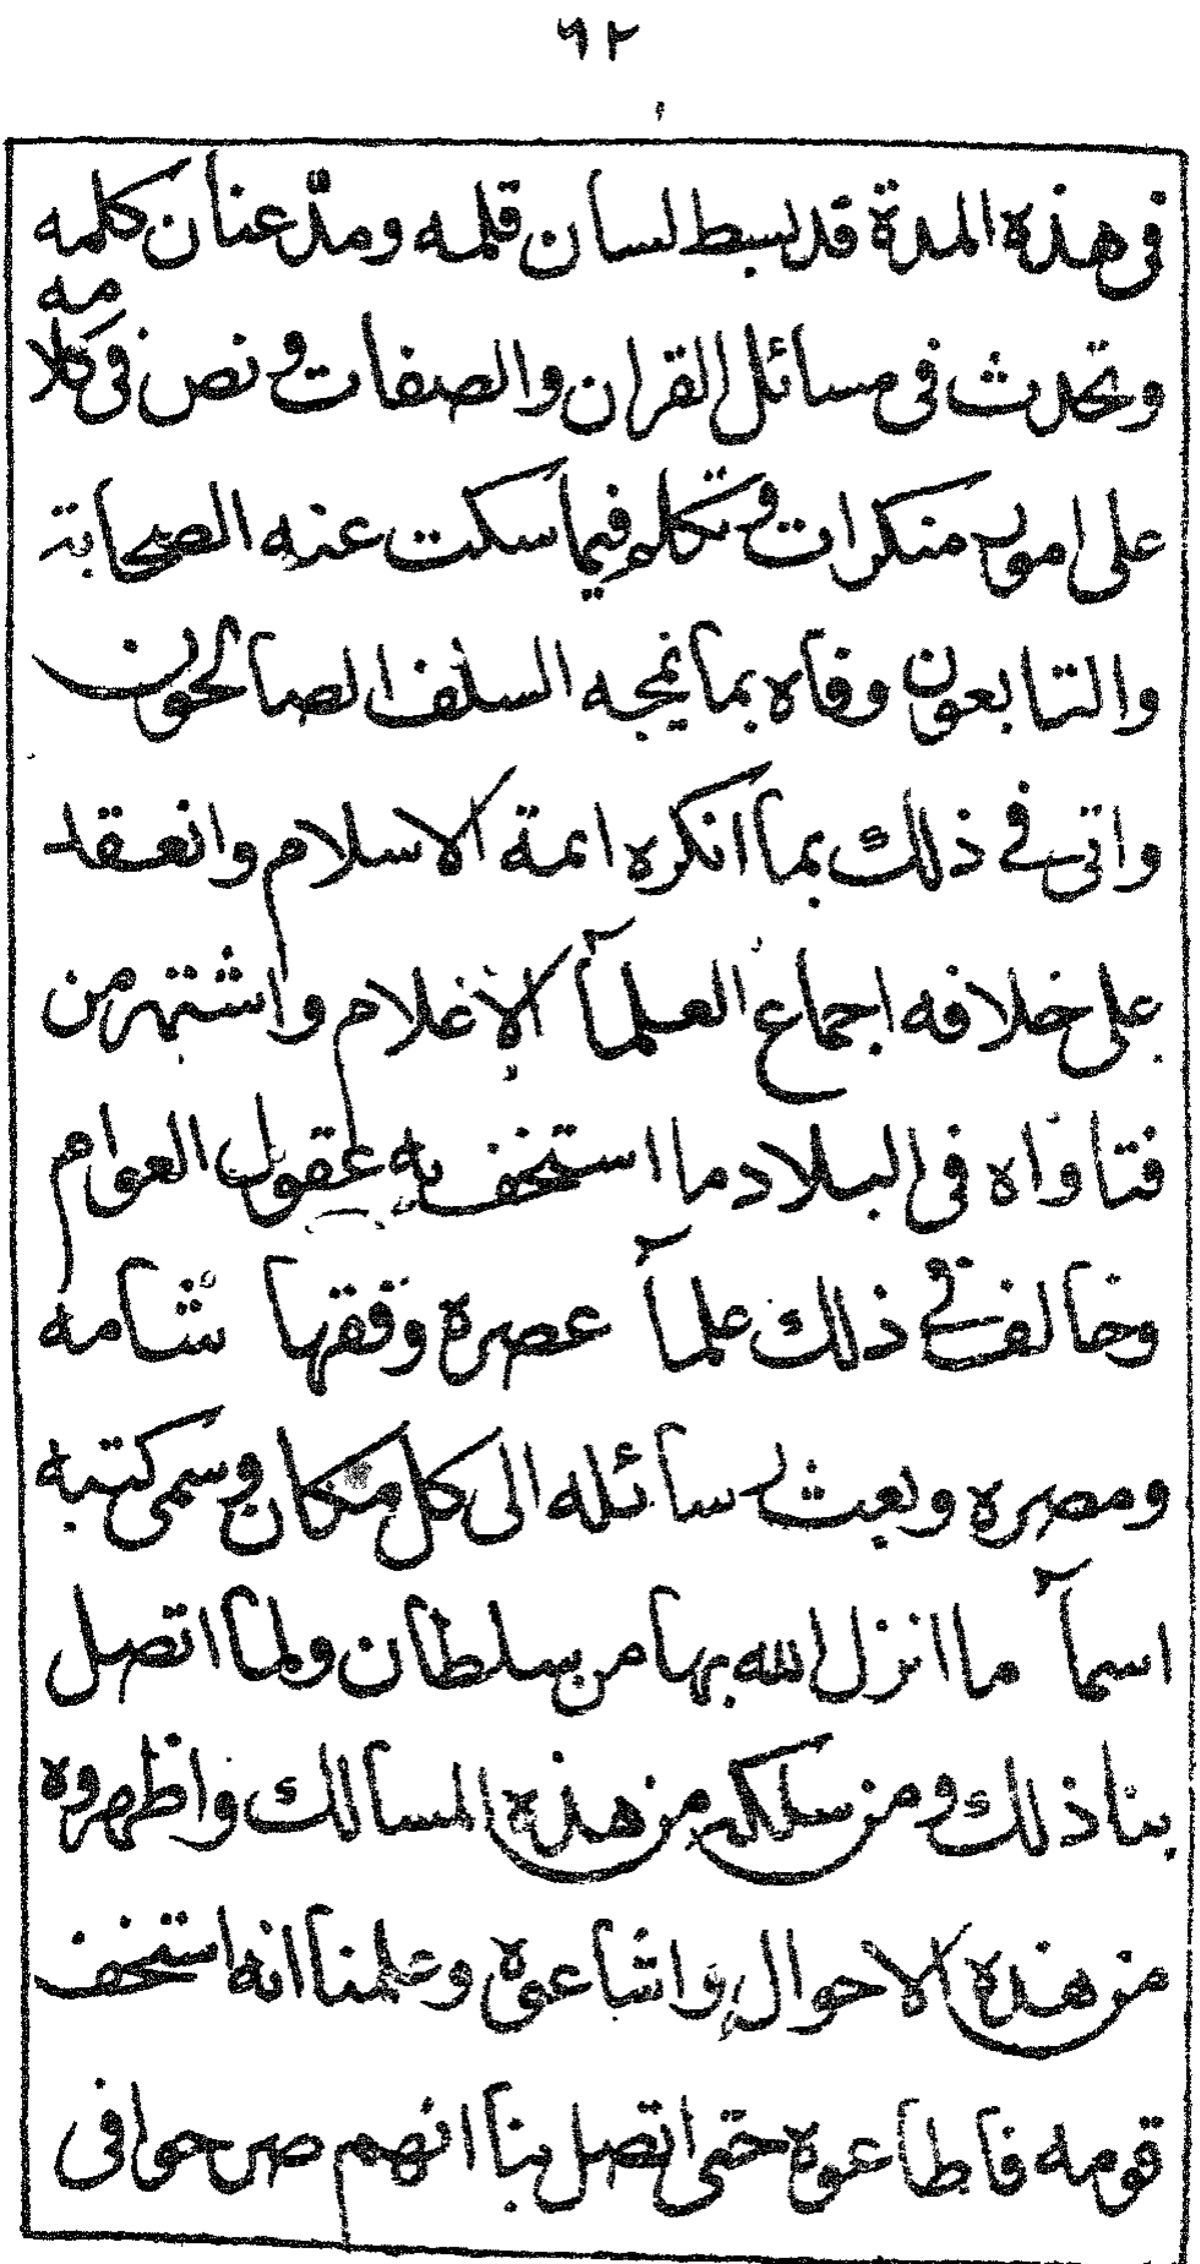 ٦٢
فى هذه المدة قد بسط لسان قلمه ومدّ عنان كلمه
وتحدث فى مسائل القران والصفات ونص فى كلامه
على امور منكرات وتكلم فيما سكت عنه الصحابة
والتابعون وفاه بما يمجه السلف الصالحون
واتى في ذلك بما انكره ائمة الاسلام وانعقد
على خلافه اجماع العلمآ الاعلام واشتهر من
فتاواه فى البلاد ما استخف به عقول العوام
وخالف في ذلك علمآ عصره وفقها شامه
ومصره وبعث رسائله الى كل مكان وسمى كتبه
اسمآ ما انزل الله بها من سلطان ولما اتصل
بنا ذلك ومن سلكه من هذه المسالك واظهروه
من هذه الاحوال واشاعوه وعلمنا انه استخف
قومه فاطاعوه حتى اتصل بنا انهم صرحوا فى